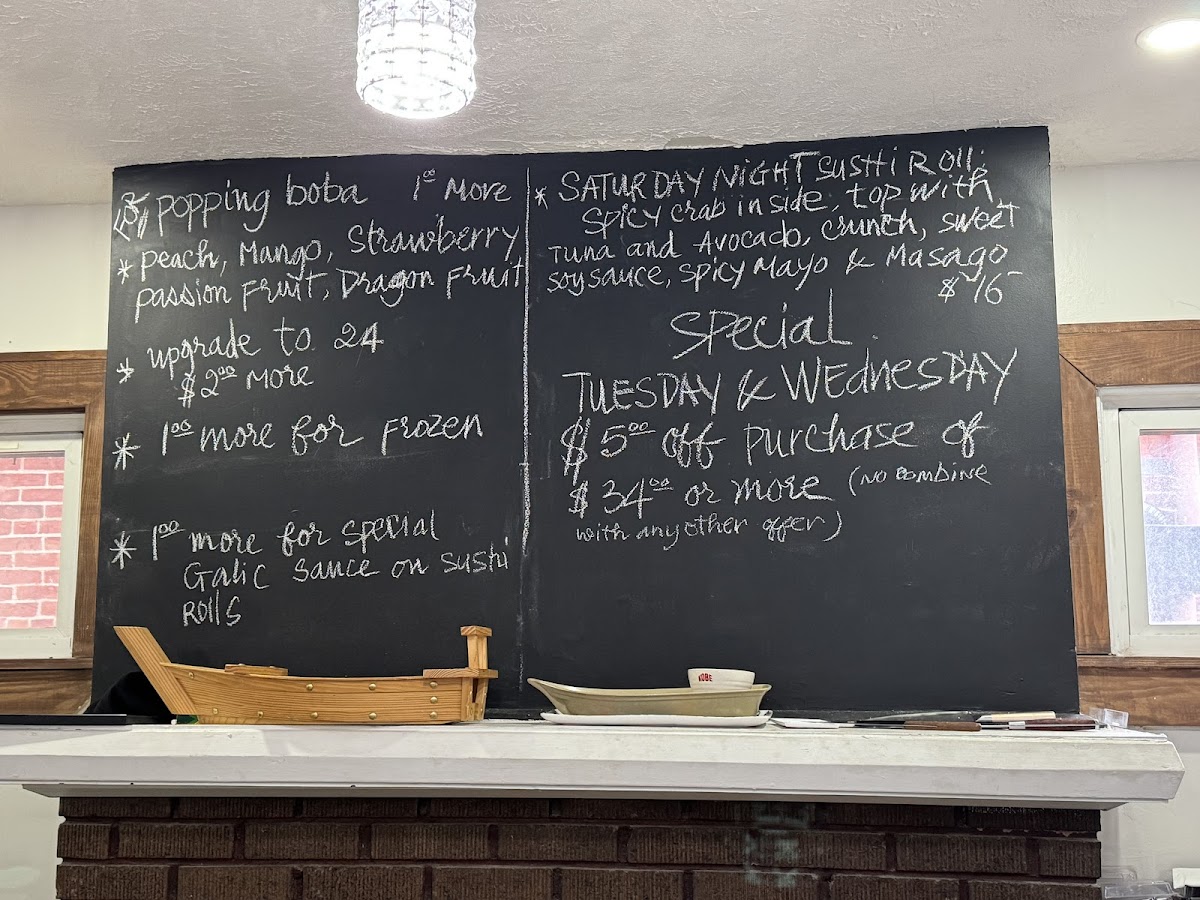 popping boba 1⁰⁰ More
* peach, Mango, Strawberry
passion Fruit, Dragon Fruit
* upgrade to 24
$2⁰⁰ More
* 1⁰⁰ more for Frozen
* 1⁰⁰ more for special
Galic Sauce on sushi
Rolls
* SATURDAY NIGHT SUSHI ROLL:
SPICY crab inside, top with
Tuna and Avocado, crunch, sweet
soy sauce, spicy Mayo & Masago
$16
Special
TUESDAY & WEDNESDAY
$5⁰⁰ off purchase of
$34⁰⁰ or more (No combine
with any other offer)
KOBE